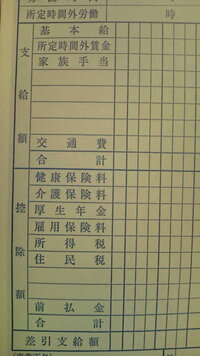 所定時間外労働 時
支給額
基本給
所定時間外賃金
家族手当
交通費
合計
控除額
健康保険料
介護保険料
厚生年金
雇用保険料
所得税
住民税
前払金
合計
差引支給額